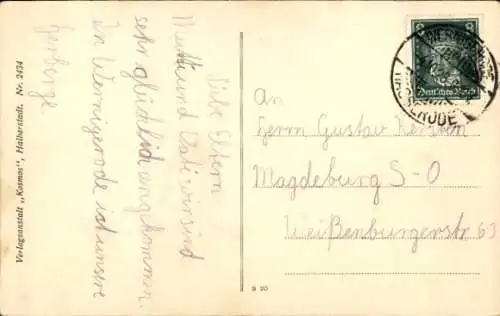 Liebe Eltern
Mutti und Vati wir sind
sehr glücklich angekommen.
In Wernigerode ist unsere
Herberge
An
Herrn Gustav Kersten
Magdeburg S-O
Weißenburgerstr 63
Deutsches Reich
8 8
RODE
Verlagsanstalt „Kosmos", Halberstadt. Nr. 2434
S 20